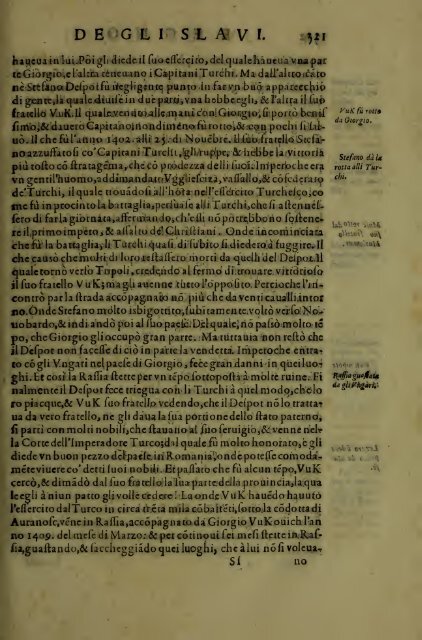 DEGLI SLAVI. 321
haueua in lui. Poi gli diede il suo essercito, del quale haueua vna par
te Giorgio, e l'altra teneuano i Capitani Turchi. Ma dall'altro cāto
nè Stefano Despot fù negligente punto in far vn buō apparecchio
di gente, la quale diuise in due parti, vna hebbe egli, & l'altra il suo
fratello VuK. Il quale vendo alle mani con Giorgio, si portò benis
simo, & da vero Capitano, nondimeno fù rotto, & con pochi si sal-
uò. Il che fù l'anno 1402. alli 21. di Nouēbre. Il suo fratello Stefa-
no azzuffatosi co' Capitani Turchi, gli ruppe, & hebbe la vittoria
più tosto cō stratagēma, che cō prodezza delli suoi. Imperoche era
vn gentil'huomo, addimandato Vggliescia, vassallo, & cōfederato
de' Turchi, il quale trouādosi all'hora nell'essercito Turchesco, co
me fù in procinto la battaglia, persuase alli Turchi, che si astenes-
sero di far la giornata, affermando, ch'essi nō potrebbono sostene-
re il primo impeto, & assalto de' Christiani. Onde incominciata
che fù la battaglia, li Turchi quasi di subito si diedero à fuggire. Il
che causò che molti di loro restassero morti da quelli del Despot. Il
quale tornò verso Tripoli, credendo al fermo di trouare vittorioso
il suo fratello VuK; ma gli auenne tutto l'opposito. Percioche l'in-
contrò per la strada accōpagnato nō più che da venti caualli intor
no. Onde Stefano molto isbigottito, subitamente voltò verso No-
uobardo, & indi andò poi al suo paese. Del quale, nō passò molto tē
po, che Giorgio gli occupò gran parte. Ma tuttauia non restò che
il Despot non facesse di ciò in parte la vendetta. Imperoche entra-
to cō gli Vngari nel paese di Giorgio, fece gran danni in quei luo-
ghi. Et così la Rassia stette per vn tēpo sottoposta à molte ruine. Fi
nalmente il Despot fece triegua con li Turchi à quel modo, che lo
ro piacque, & VuK suo fratello vedendo, che il Despot nō lo tratta-
ua da vero fratello, ne gli daua la sua portione dello stato paterno,
si partì con molti nobili, che stauano al suo seruigio, & venne nel-
la Corte dell'Imperadore Turco; dal quale fù molto honorato, e gli
diede vn buon pezzo del paese in Romania, onde potesse comoda-
mēte viuere co' detti suoi nobili. Et passato che fù alcun tēpo, VuK
cercò, & dimādò dal suo fratello la sua parte della prouincia, la qua
le egli à niun patto gli volle cedere. La onde VuK hauēdo hauuto
l'essercito dal Turco in circa trēta mila cōbattēti, sotto la cōdotta di
Auranose, vēne in Rassia, accōpagnato da Giorgio VuKouich l'an
no 1409. del mese di Marzo: & per cōtinoui sei mesi stette in Ras-
sia, guastando, & saccheggiādo quei luoghi, che à lui nō si voleua-
Sf no
VuK fù rotto
da Giorgio.
Stefano dà la
rotta alli Tur-
chi.
Rassia guastata
da gli Vngari.